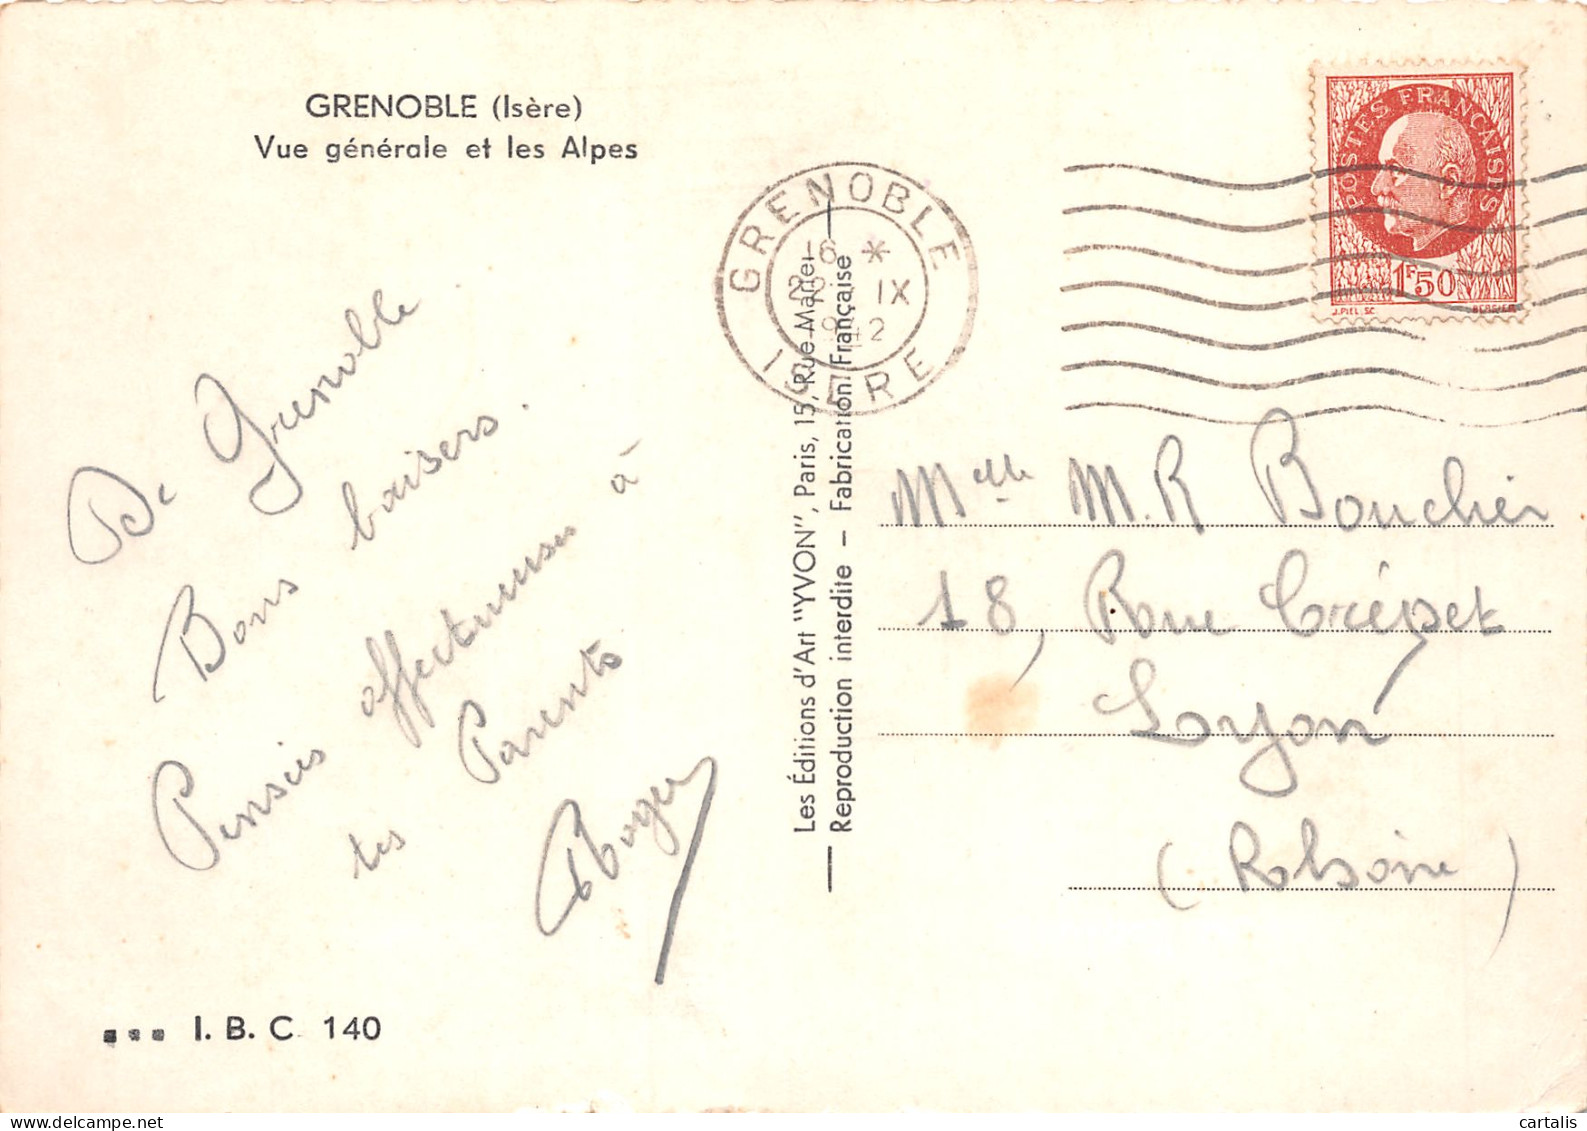 GRENOBLE (Isère)
Vue générale et les Alpes
De Grenoble
Bons baisers.
Pensées affectueuses à
tes Parents
Roger
... I. B. C. 140
Les Éditions d'Art "YVON", Paris, 15, Rue Martel
Reproduction interdite — Fabrication Française
GRENOBLE
16 *
IX
42
ISERE
POSTES FRANÇAISES
1F50
J.PIEL.SC.
Melle M.R Boucher
18, Rue Crépet
Lyon
(Rhône)
cartalis